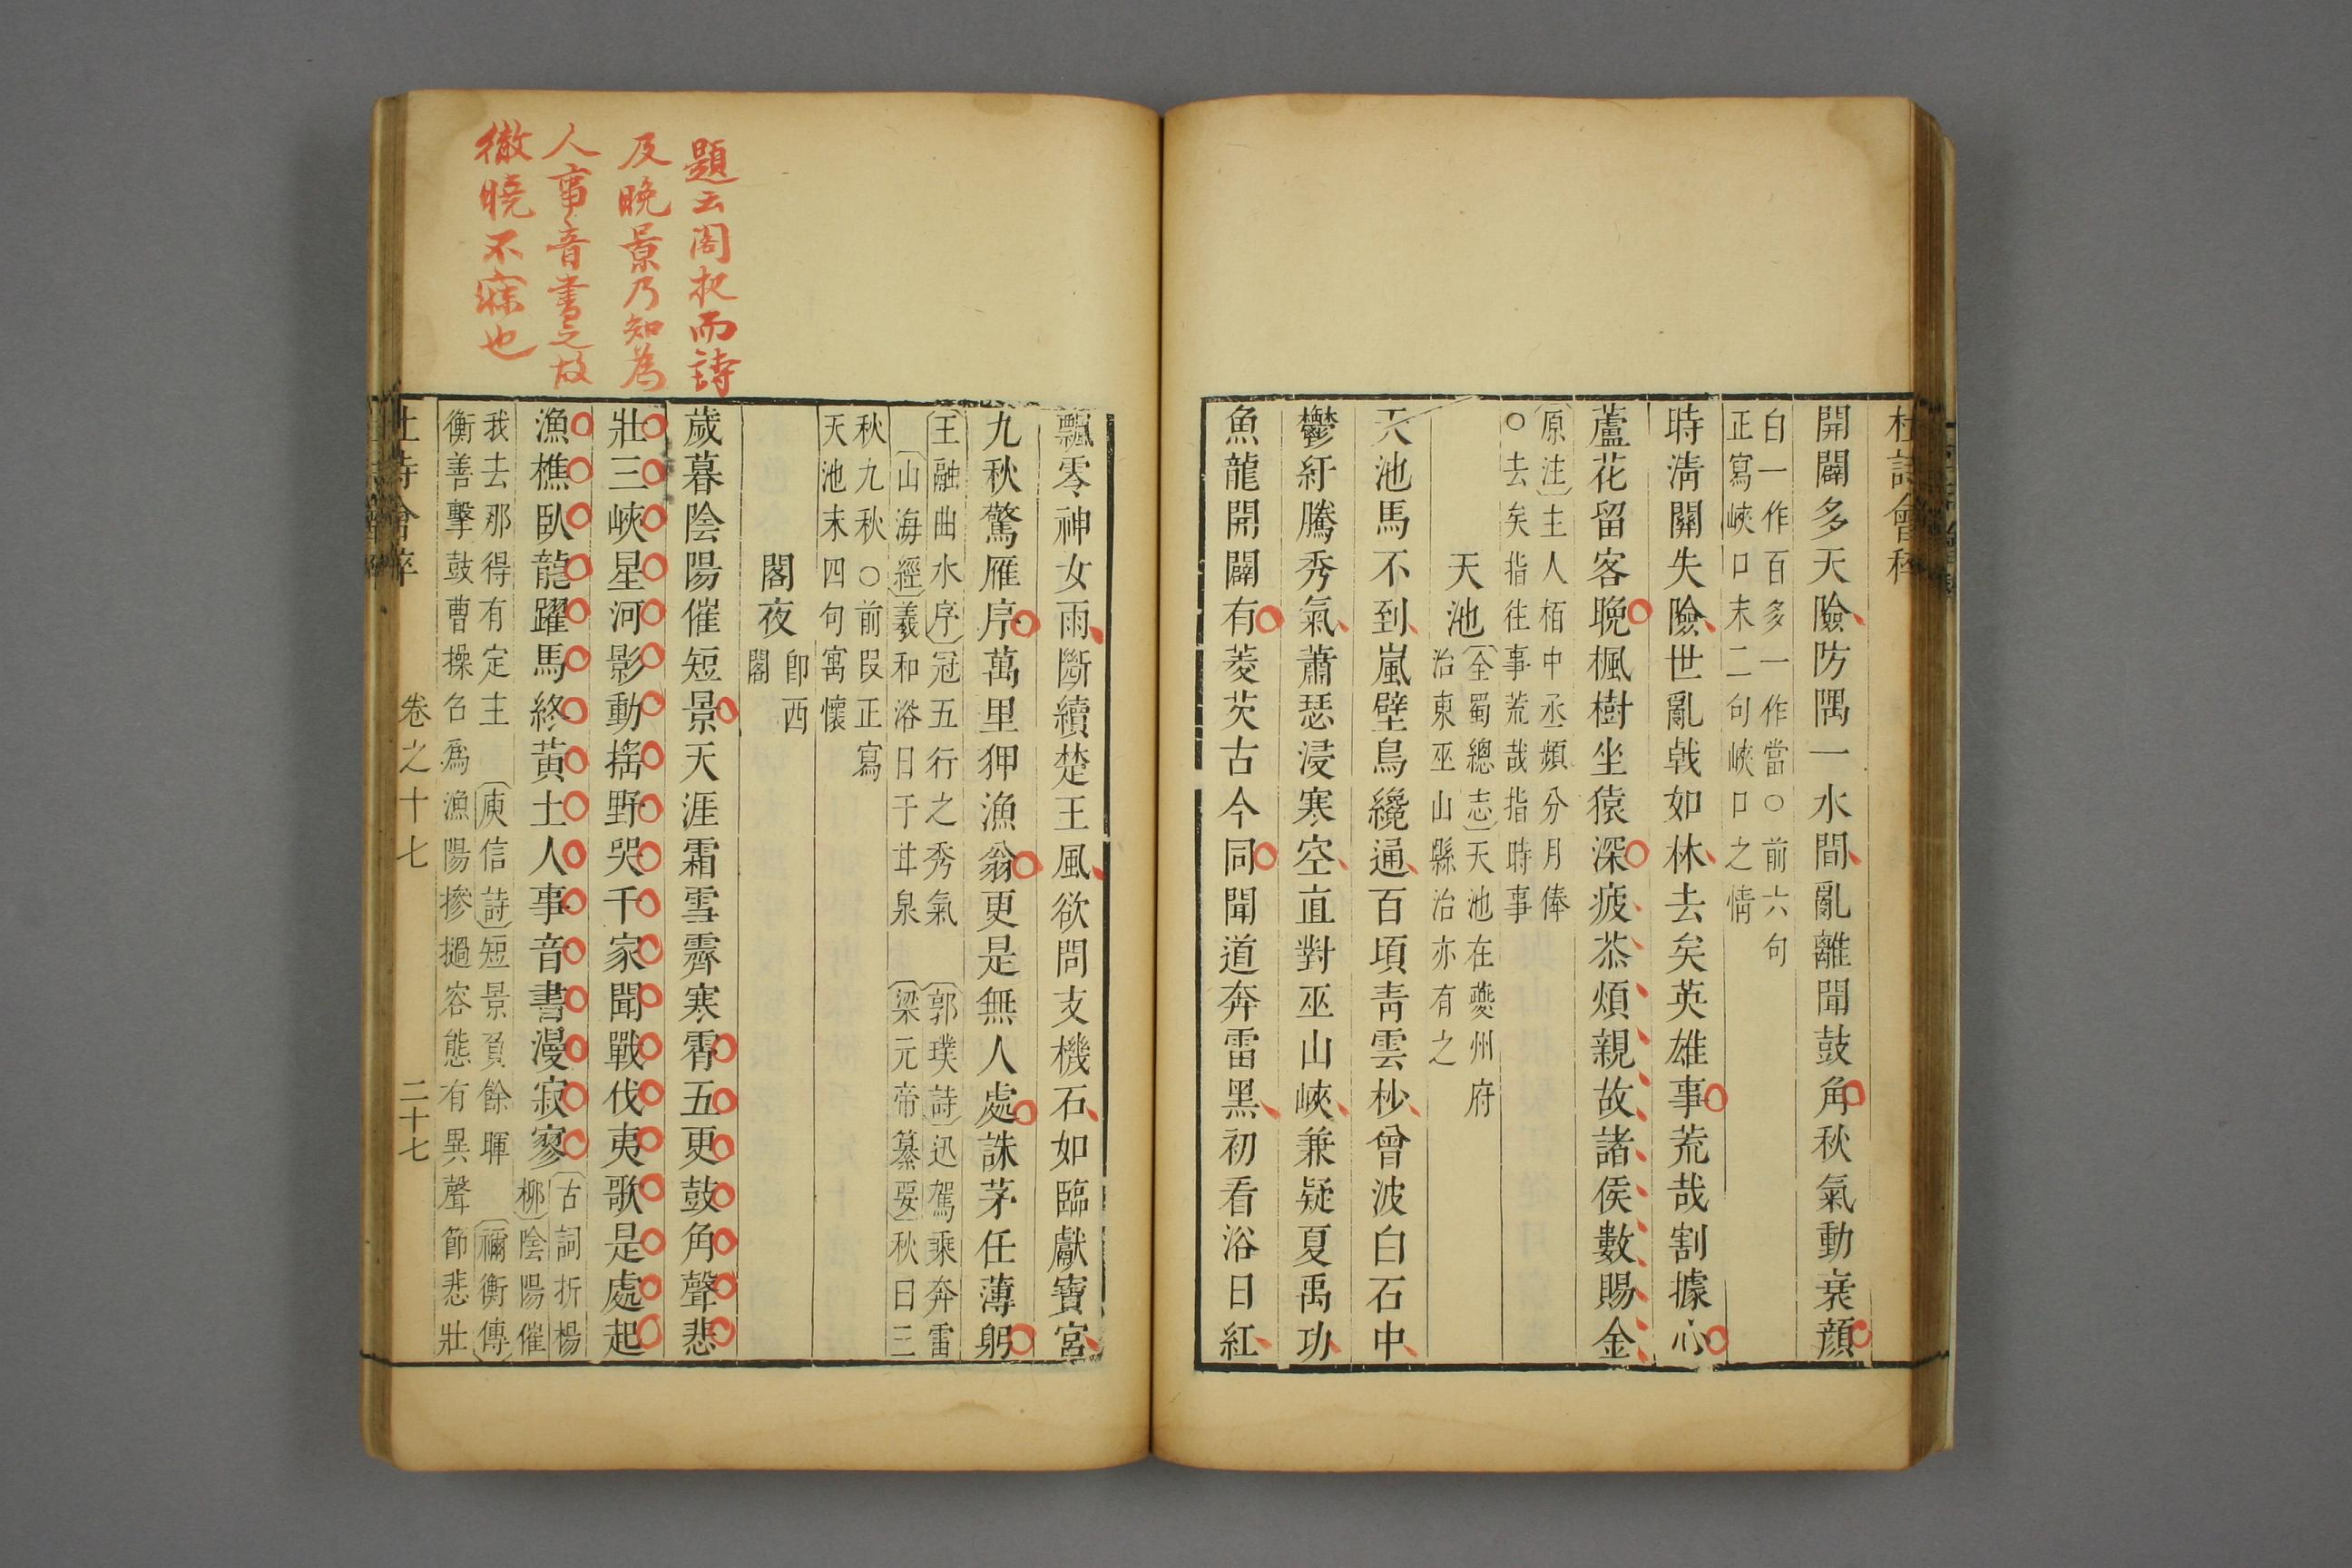 杜詩會稡
開闢多天險防隅一水間亂離聞鼓角秋氣動衰顔
白一作百多一作當○前六句
正寫峽口末二句峽口之情
時淸關失險世亂戟如林去矣英雄事荒哉割據心
蘆花留客晚楓樹坐猿深疲苶煩親故諸侯數賜金
原注主人栢中丞頻分月俸
○去矣指往事荒哉指時事
天池
全蜀總志天池在夔州府
治東巫山縣治亦有之
天池馬不到嵐壁鳥纔通百頃靑雲杪曾波白石中
鬱紆騰秀氣蕭瑟浸寒空直對巫山峽兼疑夏禹功
魚龍開闢有菱芡古今同聞道奔雷黑初看浴日紅
飄零神女雨斷續楚王風欲問支機石如臨獻寶宮
九秋驚雁序萬里狎漁翁更是無人處誅茅任薄躬
王融曲水序冠五行之秀氣 郭璞詩迅駕乘奔雷
山海經羲和浴日于甘泉 梁元帝纂要秋曰三
秋九秋○前叚正寫
天池末四句寓懷
閣夜
卽西
閣
歲暮陰陽催短景天涯霜雪霽寒霄五更鼓角聲悲
壯三峽星河影動搖野哭千家聞戰伐夷歌是處起
漁樵臥龍躍馬終黃土人事音書漫寂寥
古詞折楊
柳陰陽催
我去那得有定主 庾信詩短景負餘暉 禰衡傳
衡善擊鼓曹操召爲漁陽摻撾容態有異聲節悲壯
杜詩會稡 卷之十七 二十七
題云閣夜而詩
及晚景乃知為
人事音書之故
徹曉不寐也